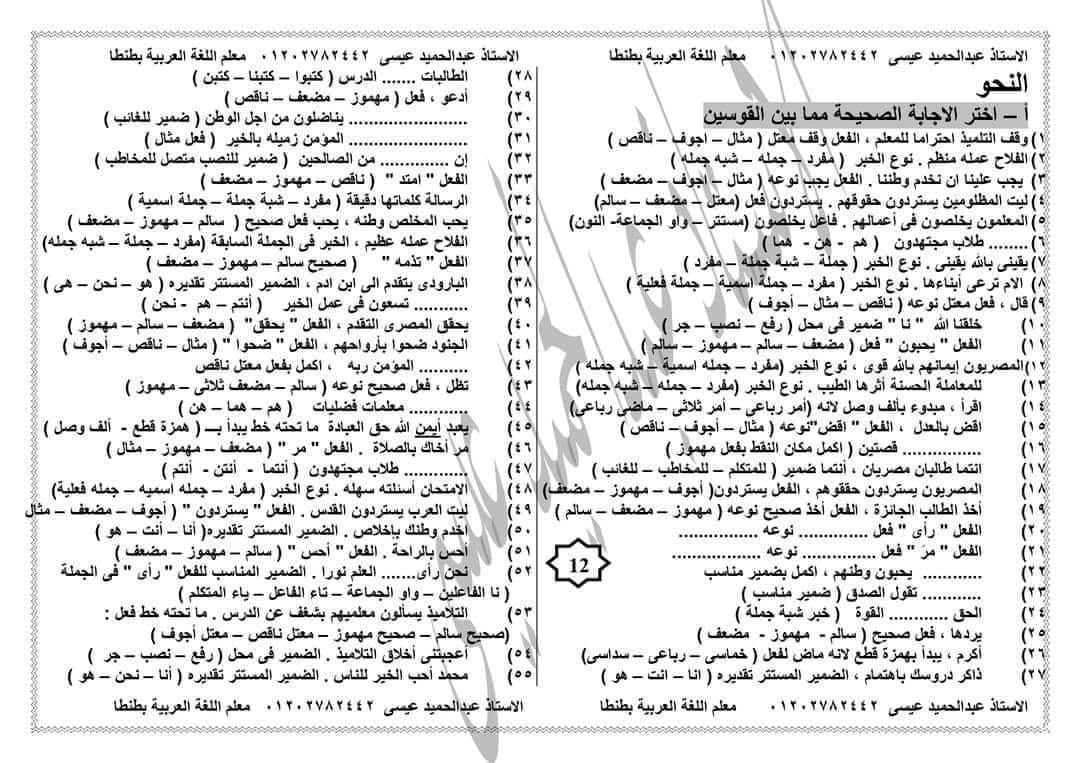 الاستاذ عبدالحميد عيسى ٠١٢٠٢٧٨٢٤٤٢ معلم اللغة العربية بطنطا
النحو
أ – اختر الاجابة الصحيحة مما بين القوسين
١) وقف التلميذ احتراما للمعلم ، الفعل وقف معتل ( مثال – اجوف – ناقص )
٢) الفلاح عمله منظم . نوع الخبر ( مفرد – جمله – شبه جمله )
٣) يجب علينا ان نخدم وطننا . الفعل يجب نوعه ( مثال – اجوف – مضعف )
٤) ليت المظلومين يستردون حقوقهم . يستردون فعل (معتل – مضعف – سالم)
٥) المعلمون يخلصون فى أعمالهم . فاعل يخلصون (مستتر – واو الجماعة- النون)
٦) ........ طلاب مجتهدون ( هم - هن - هما )
٧) يقينى بالله يقينى . نوع الخبر ( جملة – شبة جملة – مفرد )
٨) الام ترعى أبناءها . نوع الخبر ( مفرد – جملة اسمية – جملة فعلية )
٩) قال ، فعل معتل نوعه ( ناقص – مثال – أجوف )
١٠) خلقنا الله " نا " ضمير فى محل ( رفع – نصب – جر )
١١) الفعل " يحبون " فعل ( مضعف – سالم – مهموز – سالم )
١٢) المصريون إيمانهم بالله قوى ، نوع الخبر (مفرد – جمله اسمية – شبه جمله )
١٣) للمعاملة الحسنة أثرها الطيب . نوع الخبر (مفرد – جمله – شبه جمله)
١٤) اقرأ ، مبدوء بألف وصل لانه (أمر رباعى – أمر ثلاثى – ماضى رباعى)
١٥) اقض بالعدل ، الفعل " اقض"نوعه ( مثال – أجوف – ناقص )
١٦) ............... قصتين ( اكمل مكان النقط بفعل مهموز )
١٧) انتما طالبان مصريان ، أنتما ضمير ( للمتكلم – للمخاطب – للغائب )
١٨) المصريون يستردون حققوهم ، الفعل يستردون( أجوف – مهموز – مضعف)
١٩) أخذ الطالب الجائزة ، الفعل أخذ صحيح نوعه ( مهموز – مضعف – سالم )
٢٠) الفعل " رأى " فعل .............. نوعه ................
٢١) الفعل " مرّ " فعل ............... نوعه ..................
٢٢) ............ يحبون وطنهم ، اكمل بضمير مناسب
٢٣) ............ تقول الصدق ( ضمير مناسب )
٢٤) الحق ............ القوة ( خبر شبة جملة )
٢٥) يردها ، فعل صحيح ( سالم - مهموز - مضعف )
٢٦) أكرم ، يبدأ بهمزة قطع لانه ماض لفعل ( خماسى – رباعى – سداسى)
٢٧) ذاكر دروسك باهتمام ، الضمير المستتر تقديره ( انا – انت – هو )
الاستاذ عبدالحميد عيسى ٠١٢٠٢٧٨٢٤٤٢ معلم اللغة العربية بطنطا
12
الاستاذ عبدالحميد عيسى ٠١٢٠٢٧٨٢٤٤٢ معلم اللغة العربية بطنطا
٢٨) الطالبات ....... الدرس ( كتبوا – كتبنا – كتبن )
٢٩) أدعو ، فعل ( مهموز – مضعف – ناقص )
٣٠) ........................ يناضلون من اجل الوطن ( ضمير للغائب )
٣١) ........................ المؤمن زميله بالخير ( فعل مثال )
٣٢) إن .............. من الصالحين ( ضمير للنصب متصل للمخاطب )
٣٣) الفعل " امتد " ( ناقص – مهموز – مضعف )
٣٤) الرسالة كلماتها دقيقة ( مفرد – شبة جملة – جملة اسمية )
٣٥) يحب المخلص وطنه ، يحب فعل صحيح ( سالم – مهموز – مضعف )
٣٦) الفلاح عمله عظيم ، الخبر فى الجملة السابقة (مفرد – جملة – شبه جمله)
٣٧) الفعل " تذمه " ( صحيح سالم – مهموز – مضعف )
٣٨) البارودى يتقدم الى ابن ادم ، الضمير المستتر تقديره ( هو – نحن – هى )
٣٩) ........... تسعون فى عمل الخير ( أنتم – هم - نحن )
٤٠) يحقق المصرى التقدم ، الفعل " يحقق" ( مضعف – سالم – مهموز )
٤١) الجنود ضحوا بأرواحهم ، الفعل " ضحوا " ( مثال – ناقص – أجوف )
٤٢) .......... المؤمن ربه ، اكمل بفعل معتل ناقص
٤٣) تظل ، فعل صحيح نوعه ( سالم – مضعف ثلاثى – مهموز )
٤٤) ............ معلمات فضليات ( هم – هما – هن )
٤٥) يعبد أيمن الله حق العبادة ما تحته خط يبدأ بـــ ( همزة قطع - ألف وصل )
٤٦) مر أخاك بالصلاة . الفعل " مر " ( مضعف – مهموز – مثال )
٤٧) ............. طلاب مجتهدون ( أنتما - أنتن - أنتم )
٤٨) الامتحان أسئلته سهله . نوع الخبر ( مفرد – جمله اسميه – جمله فعلية)
٤٩) ليت العرب يستردون القدس . الفعل " يستردون " ( أجوف – مضعف – مثال
٥٠) أخدم وطنك بإخلاص . الضمير المستتر تقديره( أنا – أنت – هو )
٥١) أحس بالراحة . الفعل " أحس " ( سالم – مهموز – مضعف )
٥٢) نحن رأى....... العلم نورا . الضمير المناسب للفعل " رأى " فى الجملة
( نا الفاعلين – واو الجماعة – تاء الفاعل – ياء المتكلم )
٥٣) التلاميذ يسألون معلميهم بشغف عن الدرس . ما تحته خط فعل :
(صحيح سالم – صحيح مهموز – معتل ناقص – معتل أجوف )
٥٤) أعجبتنى أخلاق التلاميذ . الضمير فى محل ( رفع – نصب – جر )
٥٥) محمد أحب الخير للناس . الضمير المستتر تقديره ( أنا – نحن – هو )
الاستاذ عبدالحميد عيسى ٠١٢٠٢٧٨٢٤٤٢ معلم اللغة العربية بطنطا